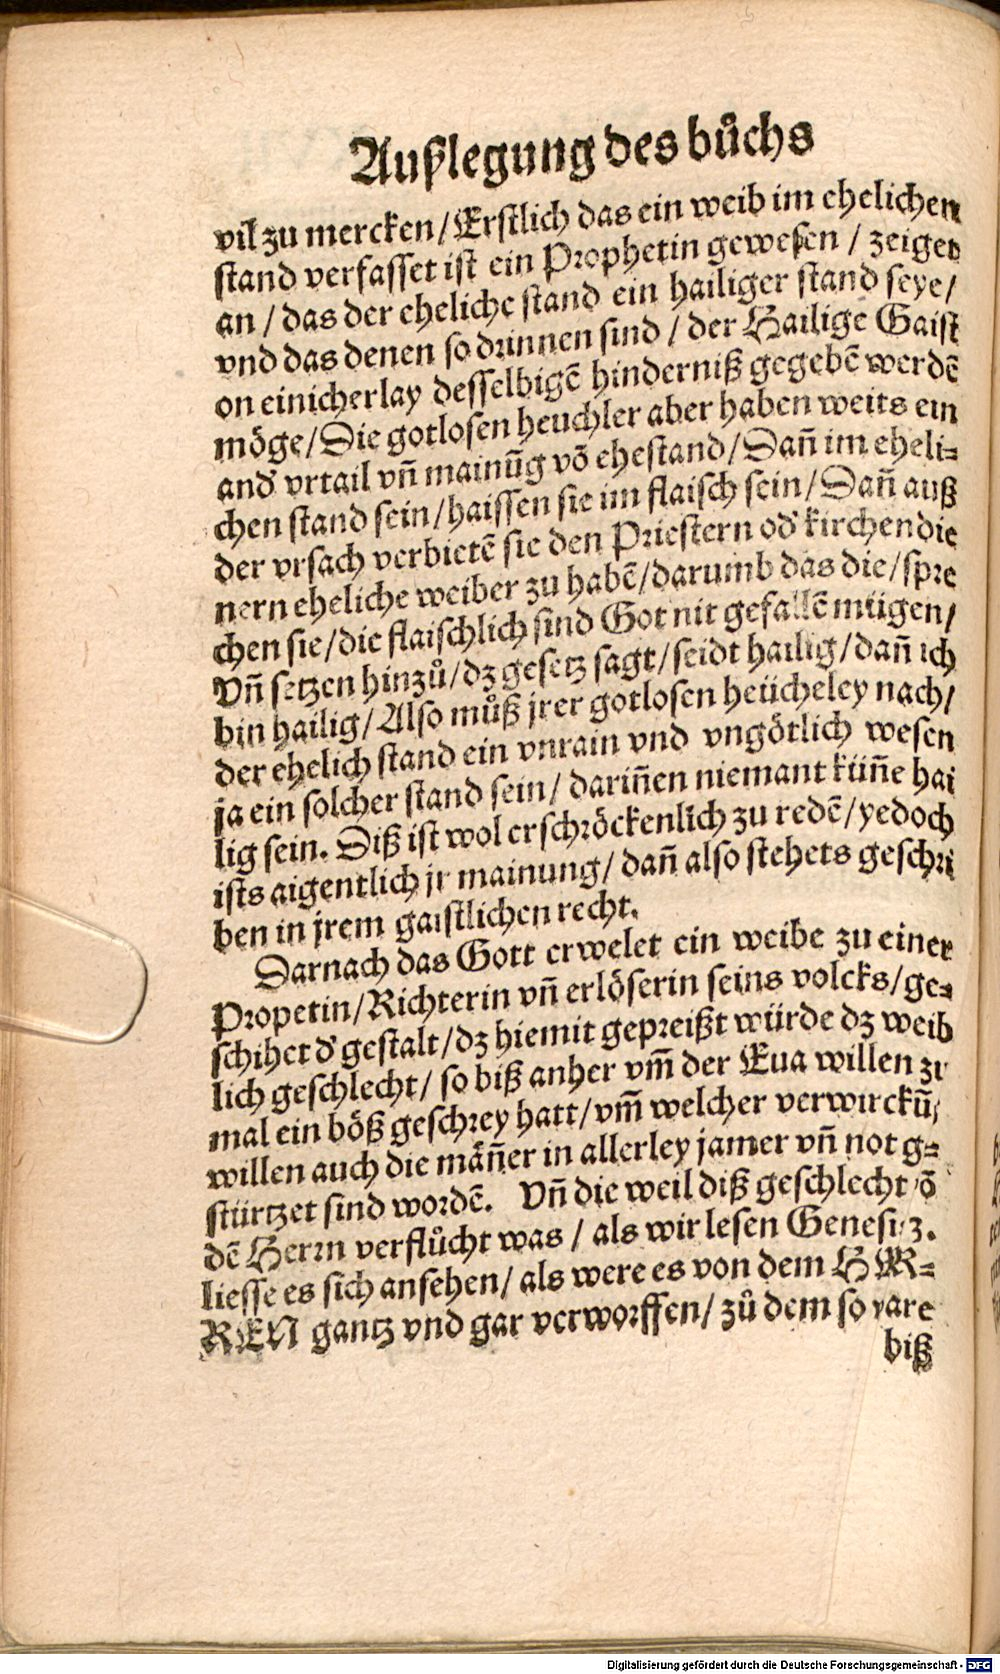 Außlegung des bůchs
vil zu mercken / Erstlich das ein weib im ehelichen
stand verfasset ist ein Prophetin gewesen / zeiget
an / das der eheliche stand ein hailiger stand seye /
vnd das denen so drinnen sind / der Hailige Gaist
on einicherlay desselbigē hinderniß gegebē werdē
möge / Die gotlosen heuchler aber haben weits ein
and' vrtail vñ mainũg võ ehestand / Dañ im eheli=
chen stand sein / haissen sie im flaisch sein / Dañ auß
der vrsach verbietē sie den Priestern od' kirchendie
nern eheliche weiber zu habē / darumb das die / spre
chen sie / die flaischlich sind Got nit gefallē mügen /
Vñ setzen hinzů / dz gesetz sagt / seidt hailig / dañ ich
bin hailig / Also můß jrer gotlosen heücheley nach /
der ehelich stand ein vnrain vnd vngötlich wesen
ja ein solcher stand sein / dariñen niemant küñe hai
lig sein. Diß ist wol erschröckenlich zu redē / yedoch
ists aigentlich jr mainung / dañ also stehets geschri
ben in jrem gaistlichen recht.
Darnach das Gott erwelet ein weibe zu einer
Propetin / Richterin vñ erlöserin seins volcks / ge=
schihet d' gestalt / dz hiemit gepreißt würde dz weib
lich geschlecht / so biß anher vm̃ der Eua willen zu
mal ein böß geschrey hatt / vm̃ welcher verwirckũg
willen auch die mäñer in allerley jamer vñ not g=
stürtzet sind wordē. Vñ die weil diß geschlecht võ
dē Herrn verflůcht was / als wir lesen Genesi. 3.
liesse es sich ansehen / als were es von dem HER=
REN gantz vnd gar verworffen / zů dem so ware
biß
Digitalisierung gefördert durch die Deutsche Forschungsgemeinschaft - DFG